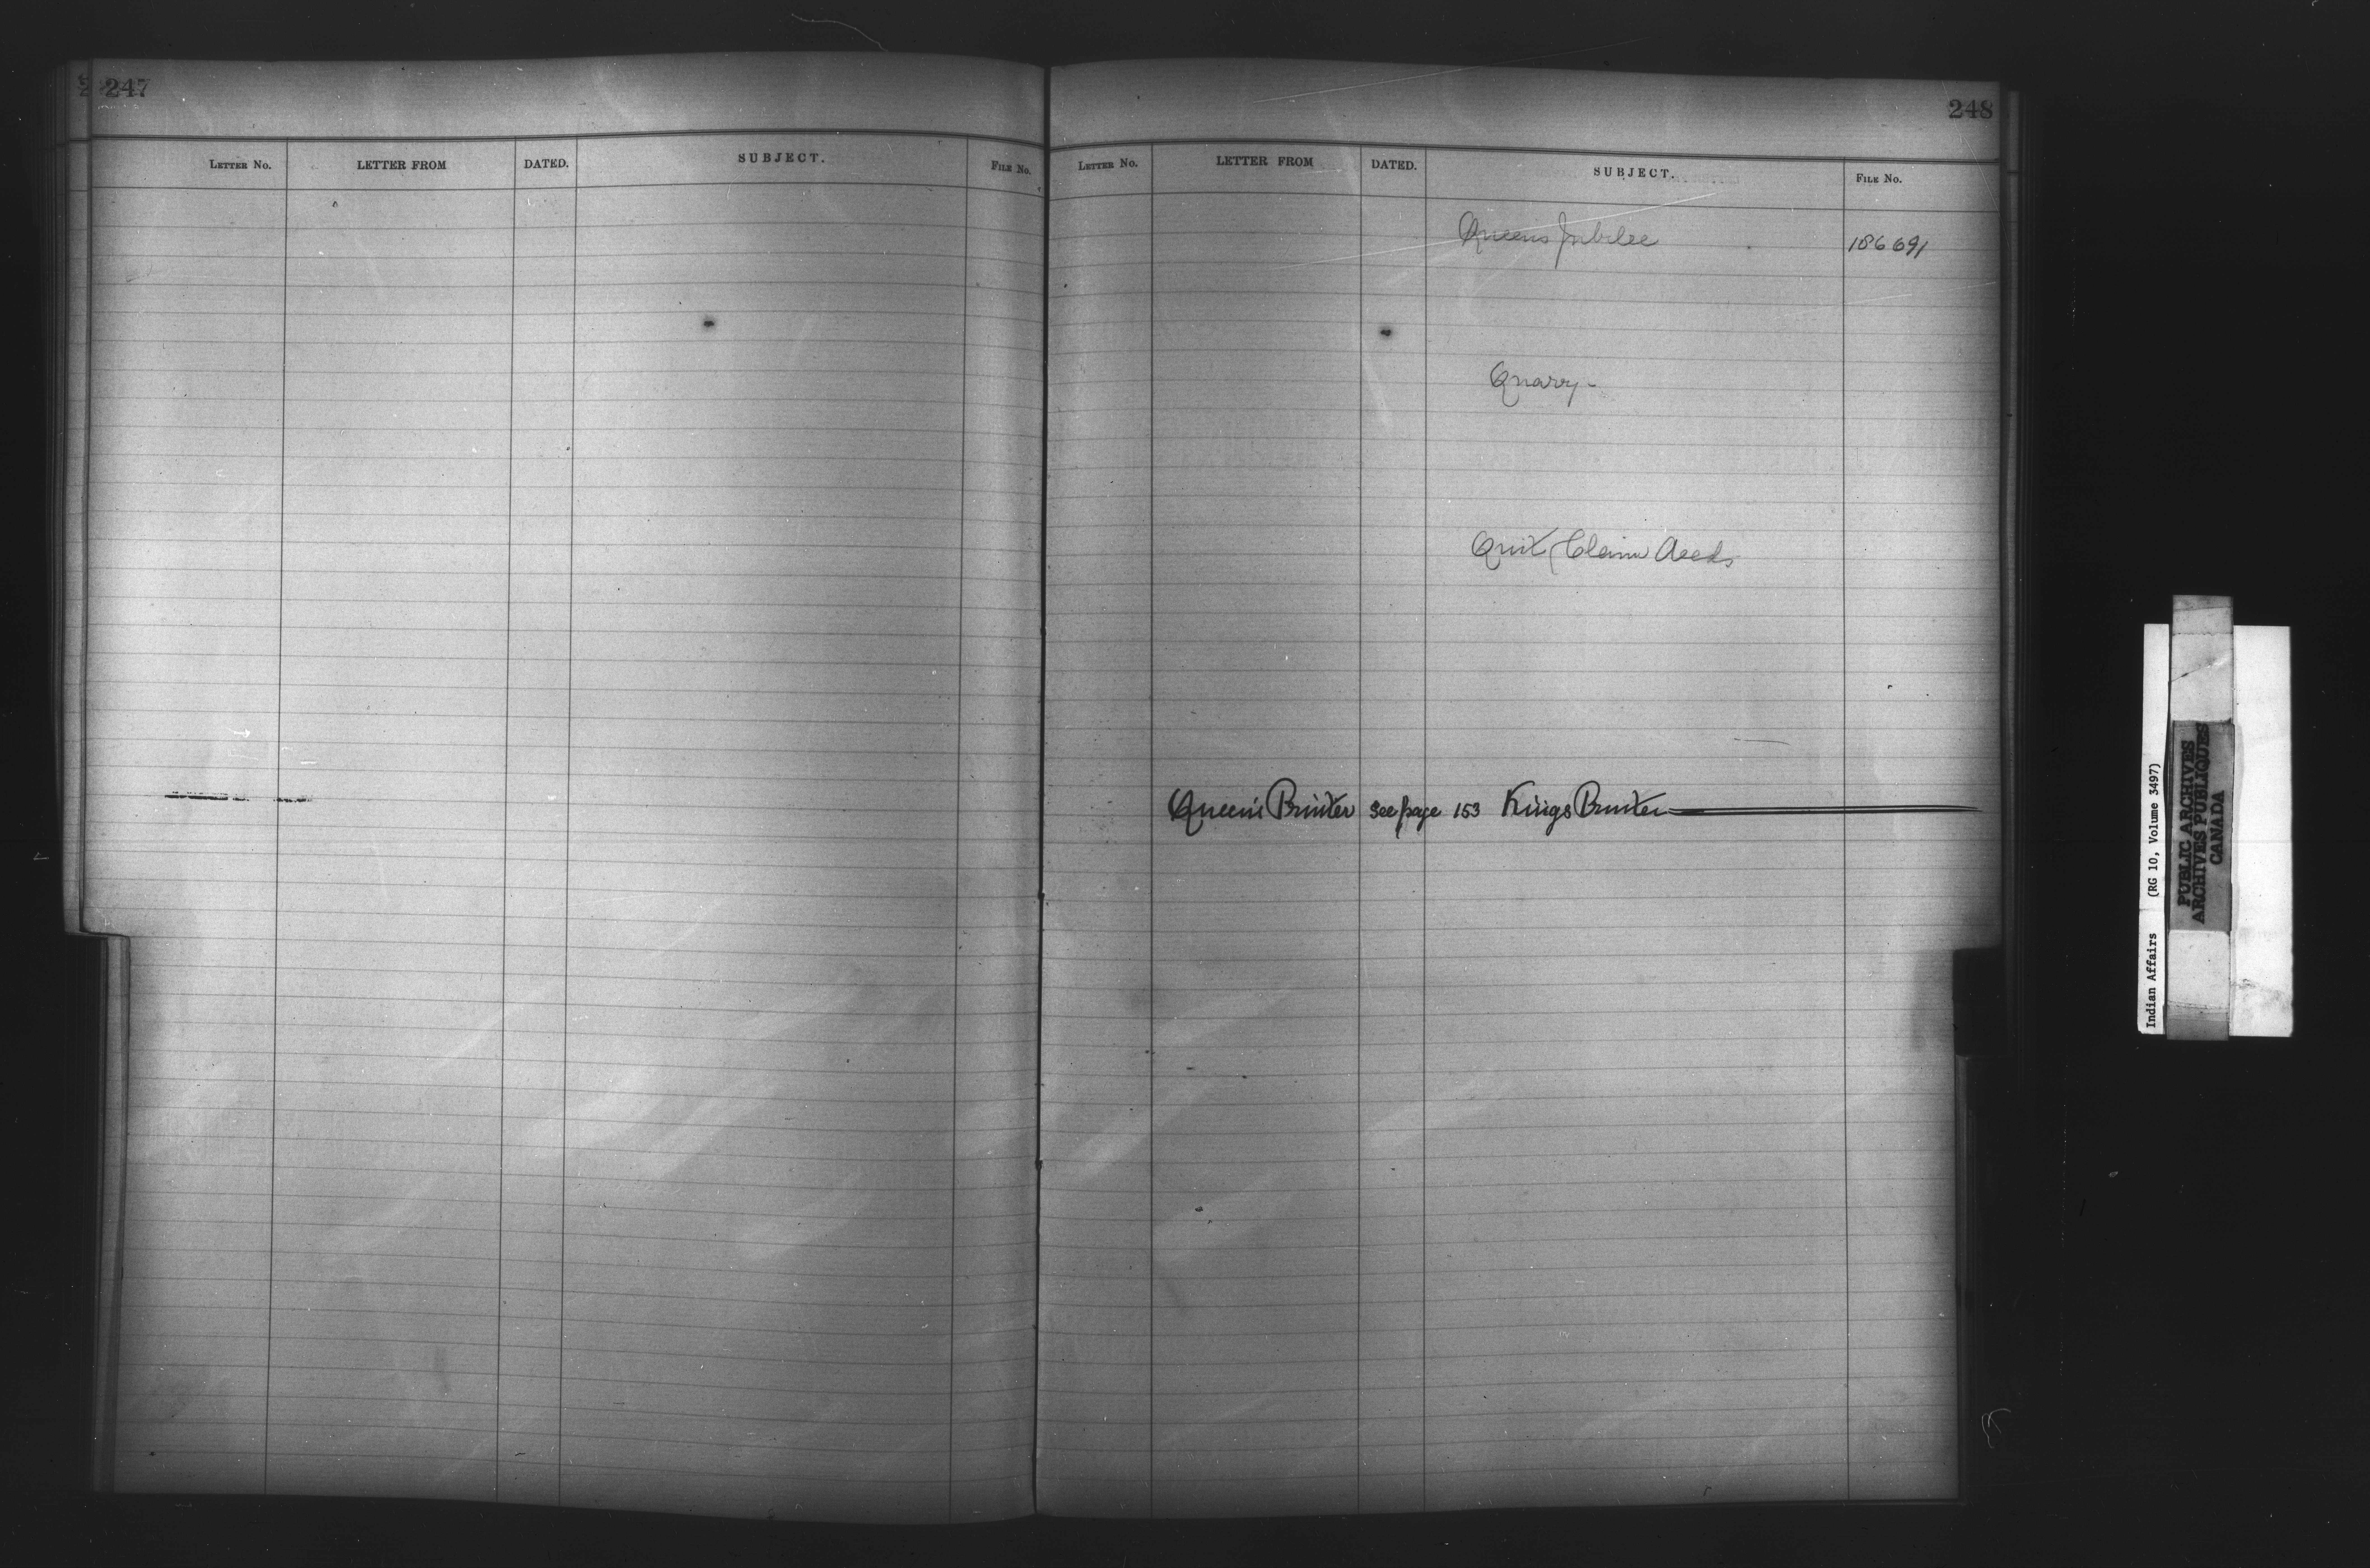 247
LETTER No. LETTER FROM DATED. SUBJECT. FILE No.
248
LETTER No. LETTER FROM DATED. SUBJECT. FILE No.
Queens Jubilee 186691
Quarry-
Quit Claim Deeds
Queen's Printer see page 153 Kings Printer
Indian Affairs (RG 10, Volume 3497)
PUBLIC ARCHIVES
ARCHIVES PUBLIQUES
CANADA